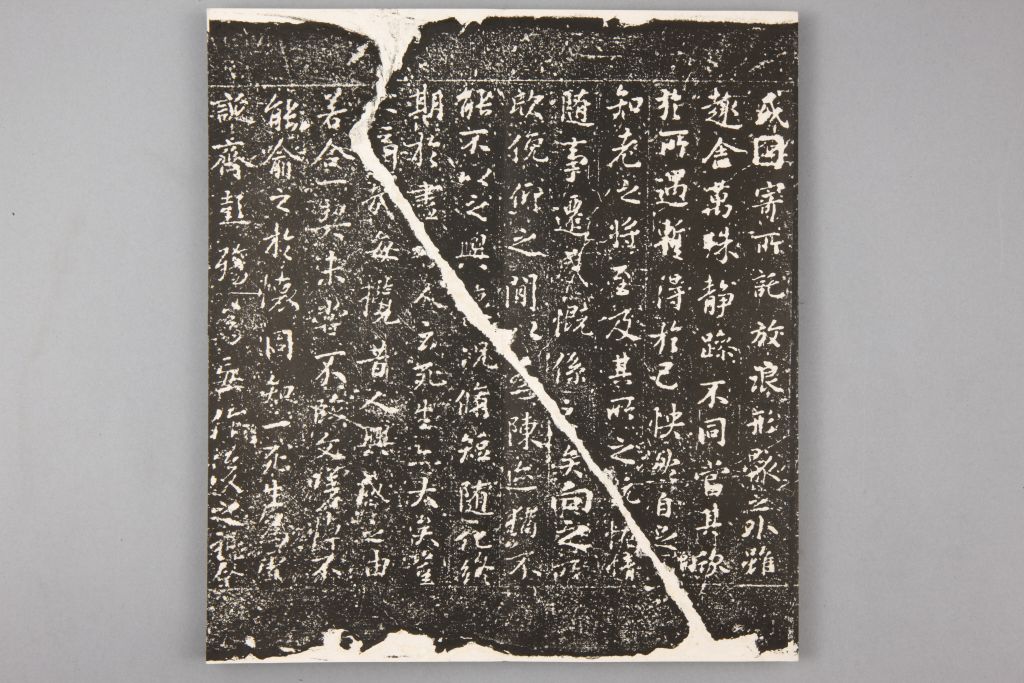 或因寄所託放浪形骸之外雖
趣舍萬殊靜躁不同當其欣
於所遇蹔得於己怏然自足
知老之將至及其所之既惓情
隨事遷感慨係之矣向之所
欣俛仰之間以為陳迹猶不
能不以之興懷況脩短隨化終
期於盡人云死生亦大矣豈
痛哉每攬昔人興感之由
若合一契未嘗不臨文嗟悼不
能喻之於懷固知一死生為虛
誕齊彭殤為妄作後之視今